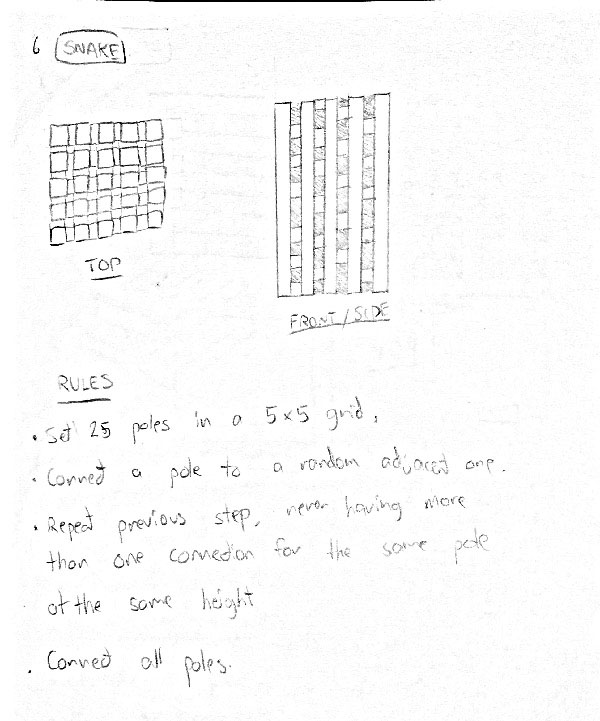 6 SNAKE
TOP
FRONT/SIDE
RULES
• Set 25 poles in a 5x5 grid.
• Connect a pole to a random adjacent one.
• Repeat previous step, never having more
than one connection for the same pole
at the same height
• Connect all poles.